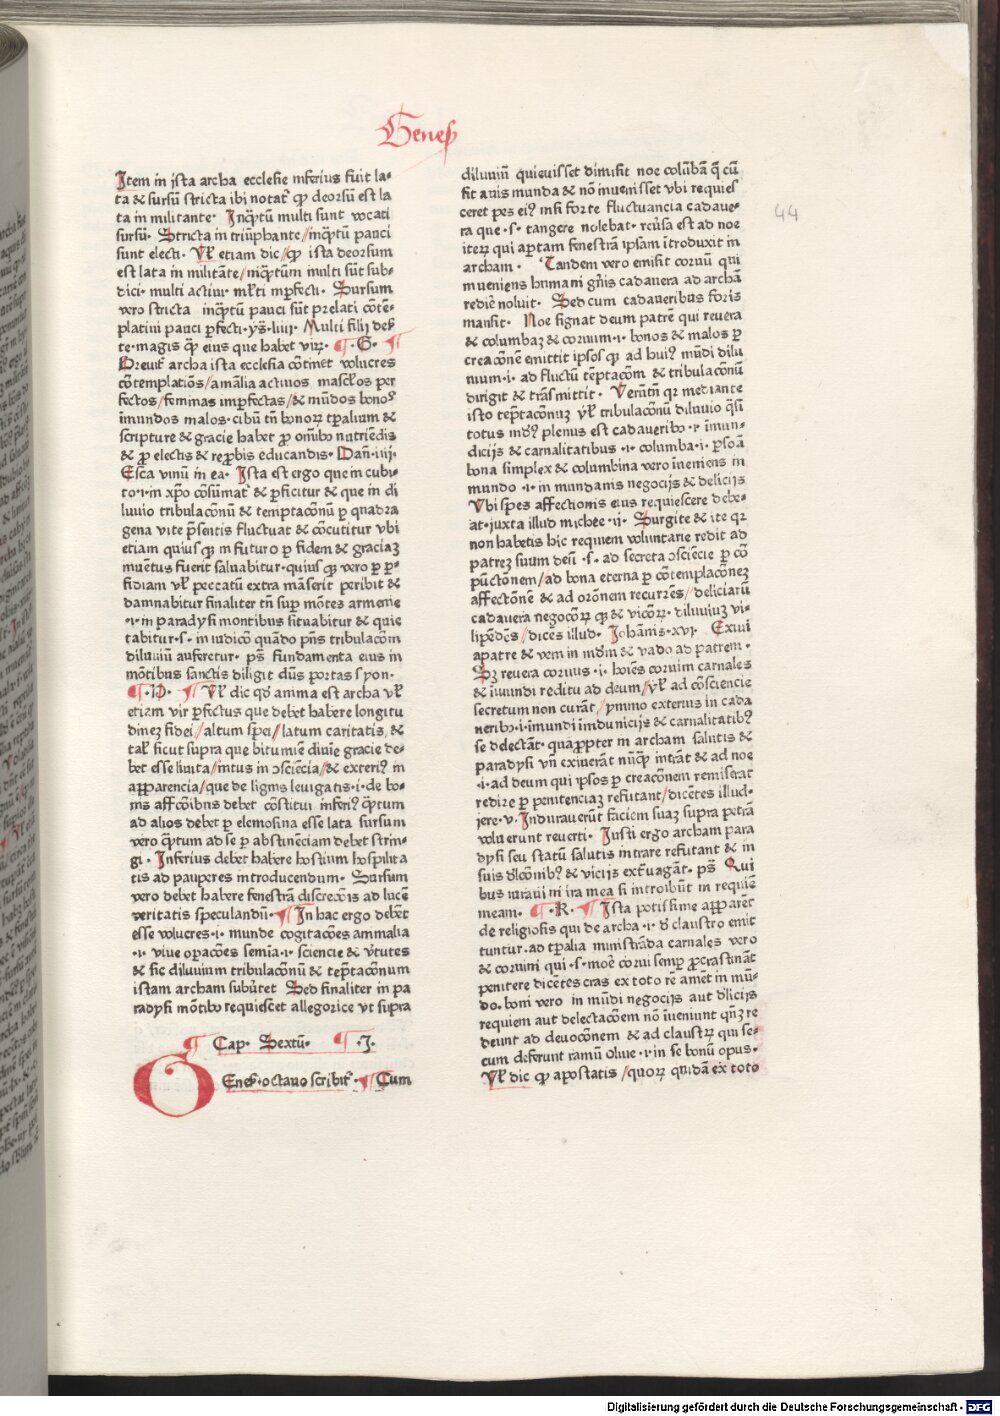 Genes
Item in ista archa ecclesie inferius fuit la-
ta & sursū stricta ibi notat͛ ꝙ deorsū est la
ta in militante· Inqͣtū multi sunt vocati
sursū· Stricta in triūphante/inqͣtū pauci
sunt electi· Vꝉ etiam dic/ꝙ ista deorsum
est lata in militāte/inqͣtūm multi sūt sub-
dici· multi actiui· mꝉti imꝑfecti· Sursum
vero stricta inqͣtū pauci sūt prelati cōtē-
platiui pauci ꝑfecti·ys̄·liiii· Multi filij des̄
te·magis qͣꝫ eius que habet viꝝ· ¶·G· ¶
Breuit͛ archa ista ecclesia cōtinet volucres
cōtemplatiōs/aīalia actiuos masclos per
fectos/feminas imꝑfectas/& mūdos bonoꝰ
īmundos malos·cibū tn̄ bonoꝝ tꝑalium &
scripture & gracie habet ꝓ omībo nutriēdis
& ꝓ electis & reꝓbis educandis· Dan̄·iiij·
Esca vinū in ea· Ista est ergo que in cubi-
to·i·in xp̄o cōsūmat͛ & ꝑficitur & que in di
luuio tribulacōnū & temptacōnū ꝑ quadra
gena vite p̄sentis fluctuat & cōcutitur vbi
etiam quiusqꝫ in futuro ꝑ fidem & graciaꝫ
inuētus fuerit saluabitur·quiusqꝫ vero ꝑ ꝑ-
fidiam vꝉ peccatū extra māserit peribit &
damnabitur finaliter tn̄ suꝑ mōtes armenie
·i·in paradysi montibus situabitur & quie
tabitur·s·in iudico quādo pn̄s tribulacōm
diluuiū auferetur· ps̄ fundamenta eius in
mōtibus sanctis diligit dūs portas syon·
¶·H· ¶ Vꝉ dic qd̄ anima est archa vꝉ
etiam vir ꝑfectus que debet habere longitu
dineꝫ fidei/altum spei/latum caritatis,&
taꝉ sicut supra que bitumīe diuīe gracie de-
bet esse liuita/intus in ↄsciēcia/& exteriꝰ in
aꝑparencia/que de lignis leuigatis·i·de bo-
nis affcōibus debet cōstitui inferiꝰ qͣntum
ad alios debet ꝑ elemosina esse lata sursum
vero qͣntum ad se ꝑ abstinēciam debet strin-
gi· Inferius debet habere hostium hospilita
tis ad pauperes introducendum· Sursum
vero debet habere fenestrā discrecōis ad lucē
veritatis speculandū· ¶ In hac ergo debet
esse volucres·i· munde cogitacōes ammalia
·i· viue oꝑacōes semia·i· sciencie & v̄tutes
& sic diluuium tribulacōnū & tēptacōnum
istam archam subūtet Sed finaliter in pa
radysi mōtibo requiescet allegorice vt supra
¶ Cap· Sextū· ¶·I·
GEnes̄·octauo scribit͛· ¶ Cum
diluuiū quieuisset dimisit noe colūbā q̄ cū
sit auis munda & nō inuenisset vbi requies
ceret pes eiꝰ nisi forte fluctuancia cadaue-
ra que·s· tangere nolebat· rcūsa est ad noe
iteꝝ qui aꝑtam fenestrā ipsam ītroduxit in
archam· Tandem vero emisit coruū qui
inueniens humani gn̄is cadauera ad archā
redire noluit· Sed cum cadaueribus foris
mansit· Noe signat deum patrē qui reuera
& columbaꝫ & coruum·i· bonos & malos ꝑ
creacōnē emittit ipsos qꝫ ad huiꝰ mūdi dilu
uium·i· ad fluctū tēptacōm & tribulacōnū
dirigit & trāsmittit· Verūtn̄ qꝛ mediante
isto tēptacōnuꝫ vꝉ tribulacōnū diluuio qͣsi
totus mūdꝰ plenus est cadaueribo·i· īmun-
dicijs & carnalitatibus·i· columba·i· ꝑsoā
bona simplex & columbina vero īneniens in
mundo·i· in mundanis negocijs & delicijs
Vbi spes affectionis eius requiescere debe-
at·juxta illud michee·ii· Surgite & ite qꝛ
non habetis hic requiem voluntarie redit ad
patreꝫ suum deū·s· ad secreta ↄsciēcie ꝑ cō
pūctōnem/ad bona eterna ꝑ cōtemplacōneꝫ
affectōnē & ad orōnem recurrēs/deliciarū
cadauera negocōꝝ qꝫ & vicōꝝ· diluuiuꝫ vi-
lipēdēs/dicēs illud· Johānis·xvi· Exiui
a patre & veni in mūdm & vado ad patrem·
Sꝫ reuera coruus·i· hoīes coruini carnales
& īmundi reditu ad deum/vꝉ ad cōsciencie
secretum non curāt/ymmo exterius in cada
neribo·i·īmundi īmdunicijs & carnalitatibꝰ
se delectāt· quāꝓpter in archam salutis &
paradysi vn̄ exiuerāt nūqͣꝫ intrāt & ad noe
·i·ad deum qui ipsos ꝑ creacōnem remiserat
redire ꝑ penitenciaꝫ refutant/dicētes illud·
jere·v· Indurauerūt faciem suaꝫ supra petrā
voluerunt reuerti· Justi ergo archam para
dysi seu statū salutis intrare refutant & in
suis d̄lcōnibꝰ & vicijs extͣuagāt· ps̄ Qui
bus iuraui in ira mea si introibūt in requiē
meam· ¶·K· ¶ Ista potissime aꝑparēt
de religiosis qui de archa·i· d̄ claustro emit
tuntur·ad tꝑalia ministrāda carnales vero
& coruini qui·s·moē corui semꝑ ꝓcrastināt
penitere dicētes cras ex toto rē amēt in mū-
do·boni vero in mūdi negocijs aut d̄licijs
requiem aut delectacōem nō īueniunt qn̄ꝫ re
deunt ad deuocōnem & ad claustꝝ qui se-
cum deferunt ramū oliue·i·in se bonū opus·
Vꝉ dic ꝙ apostatis/quoꝝ quidā ex toto
44
Digitalisierung gefördert durch die Deutsche Forschungsgemeinschaft - DFG